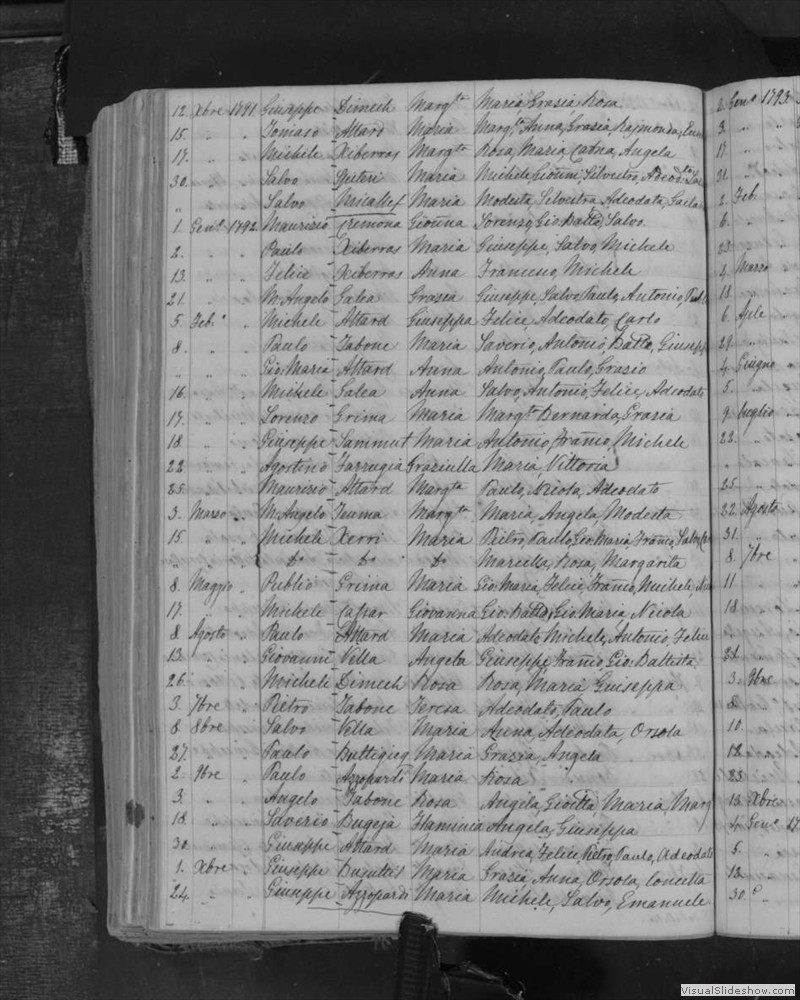 12. Xbre 1791 Giuseppe Dimech Margta Maria Grasia Rosa
15. " " Tomaso Attard Maria Margta Anna, Grasia, Rajmonda,
17. " " Michele Xiberras Margta Rosa, Maria Catna, Angela
30. " " Salvo Spiteri Maria Michele, Gioūni, Silvestro,
" " " Salvo Micallef Maria Modesta, Silvestra, Adeodata,
1. Genº 1792 Maurisio Cremona Gioūna Lorenzo, Gio Batta, Salvo
2. " " Paulo Xiberras Maria Giuseppe, Salvo, Michele
13. " " Felice Xiberras Anna Francesco, Michele
21. " " M. Angelo Galea Grasia Giuseppe, Salvo, Paulo, Antonio,
5. Febº " Michele Attard Giuseppa Felice, Adeodato, Carlo
8. " " Paulo Tabone Maria Saverio, Antonio Batta, Giusepp
" " " Gio Maria Attard Anna Antonio, Paulo, Grasio
16. " " Michele Galea Anna Salvo, Antonio, Felice, Adeodato
17. " " Lorenzo Grima Maria Margta Bernarda, Grasia
18 " " Giuseppe Sammut Maria Antonio, Franco, Michele
22 " " Agostino Farrugia Graziulla Maria, Vittoria
25. " " Maurisio Attard Margta Paulo, Nicola, Adeodato
3. Marso " M. Angelo Teuma Margta Maria, Angela, Modesta
15. " " Michele Xerri Maria Pietro, Paulo, Gio Maria, Franco, Salvo,
" " " do do do Mariella, Rosa, Margarita
8. Maggio " Publio Grima Maria Gio: Maria, Felice, Franco, Michele,
17. " " Michele Cassar Giovanna Gio: Batta, Gio Maria Nicola
8 Agosto " Paulo Attard Maria Adeodato, Michele, Antonio, Felice
13. " " Giovanni Vella Angela Giuseppe, Franco, Gio: Battista
26. " " Michele Dimech Rosa Rosa, Maria Guiseppa
3. 7bre " Pietro Tabone Teresa Adeodato, Paulo
8 8bre " Salvo Vella Maria Anna, Adeodata, Orsola
27. " " Paulo Buttigieg Maria Grasia, Angela
2. 9bre " Paulo Azzopardi Maria Rosa
3. " " Angelo Tabone Rosa Angela, Maria, Marg
18. " " Saverio Bugeja Flaminia Angela, Giuseppa
30. " " Giuseppe Attard Maria Andrea, Felice, Pietro, Paulo, Adeodato
1. Xbre " Giuseppe Busuttil Maria Grasia, Anna, Orsola, Concetta
24. " " Giuseppe Azzopardi Maria Michele, Salvo, Emanuele
2. Genº 1793
3. " "
17. "
21. "
2. Feb.
6. "
23. "
4. Marso
18. "
6. Aple
29. "
4. Giugno
5. "
9. Luglio
22. "
" "
25. "
22. Agosto
31. "
8. 7bre
11 "
18. "
" "
21. "
3. 9bre
8. "
10. "
18. "
23. "
13. Xbre
4. Genº 17
5. "
13. "
30. "
VisualSlideshow.com